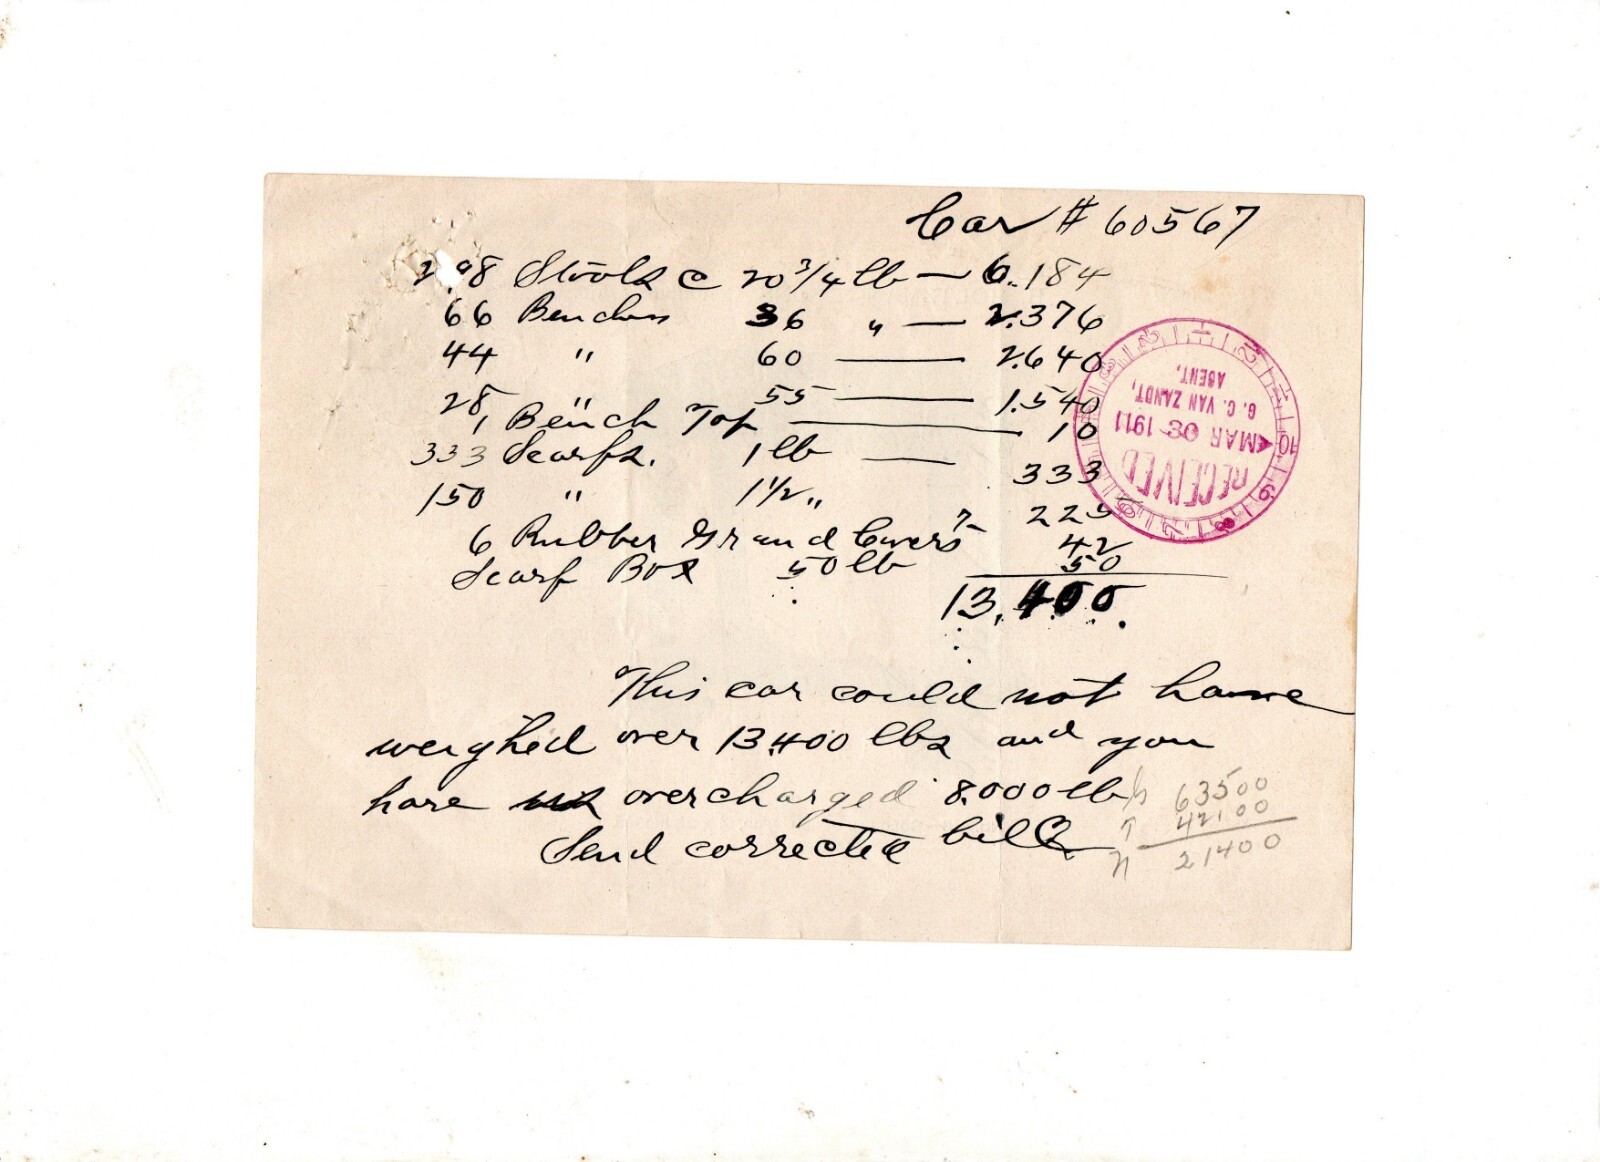 Car # 60567
298 Stools @ 20 3/4 lb — 6.184
66 Benches 36 " — 2.376
44 " 60 — 2.640
28 " 55 — 1.540
1 Bench Top — 10
333 Scarfs. 1 lb — 333
150 " 1 1/2 " 225
6 Rubber Grand Covers 7 42
Scarf Box 50 lb 50
13,400
RECEIVED
MAR 08 1911
G. C. VAN ZANDT,
AGENT.
This car could not have
weighed over 13400 lbs and you
have us overcharged 8.000 lbs
Send corrected bill
63500
T 42100
N 21400